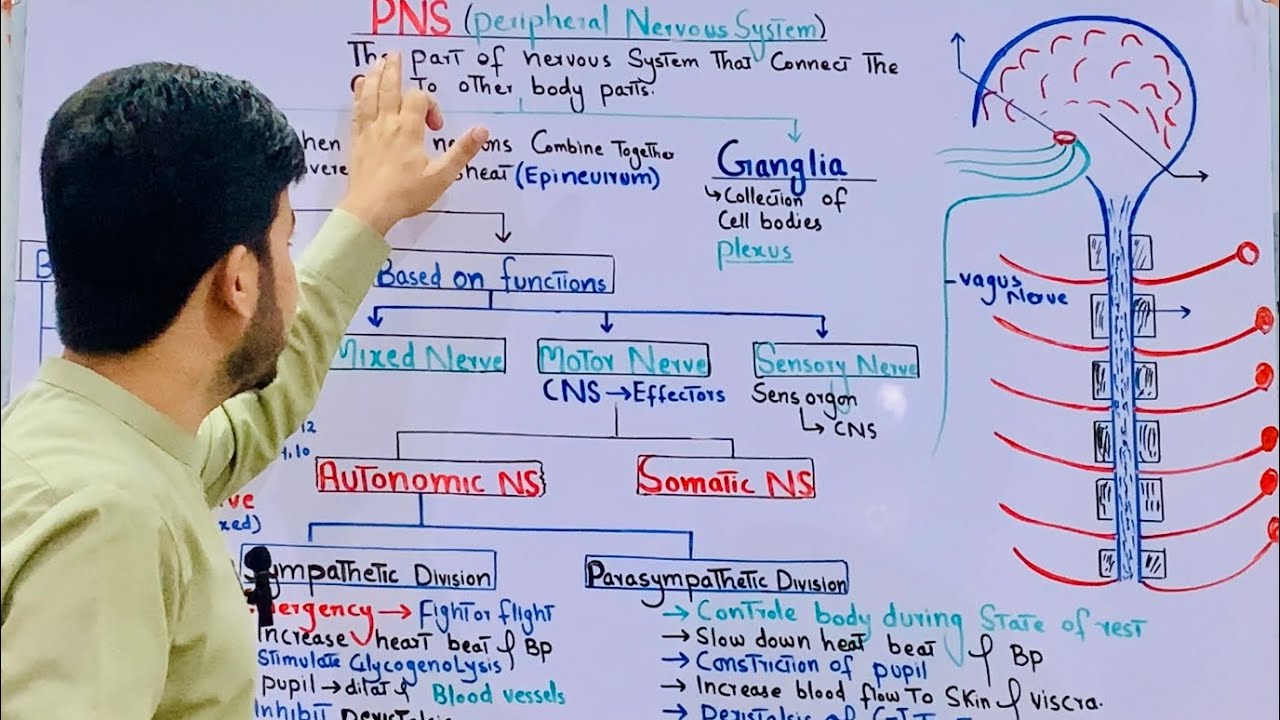 PNS (peripheral Nervous System)
The part of nervous System That Connect The
To other body parts.
Combine Together
(Epineuirum)
Ganglia
Collection of
Cell bodies
plexus
B
Based on functions
Mixed Nerve
Motor Nerve
Sensory Nerve
CNS → Effectors
Sens orgon
CNS
12
10
Autonomic NS
Somatic NS
Sympathetic Division
Parasympathetic Division
→ Fight or flight
Increase heart beat & BP
Stimulate Glycogenolysis
pupil → dilat & Blood vessels
Inhibit Peristalsis
→ Controle body during State of rest
→ Slow down heat beat & BP
→ Constriction of pupil
→ Increase blood flow To Skin & viscra.
vagus
Nerve